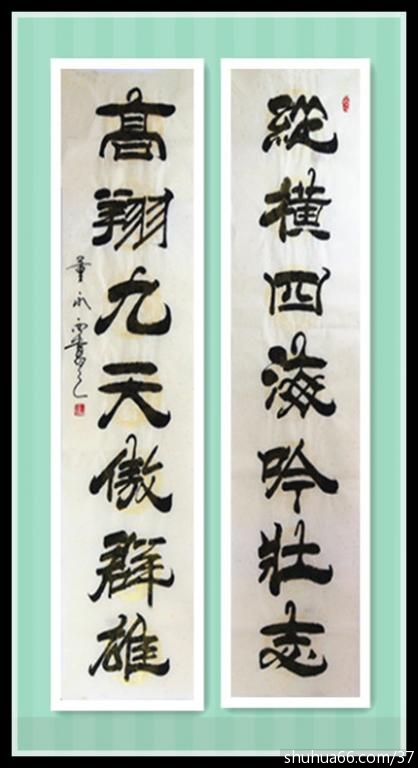 縱橫四海吟壯志
高翔九天傲群雄
董永
書之
shuhua66.com/37